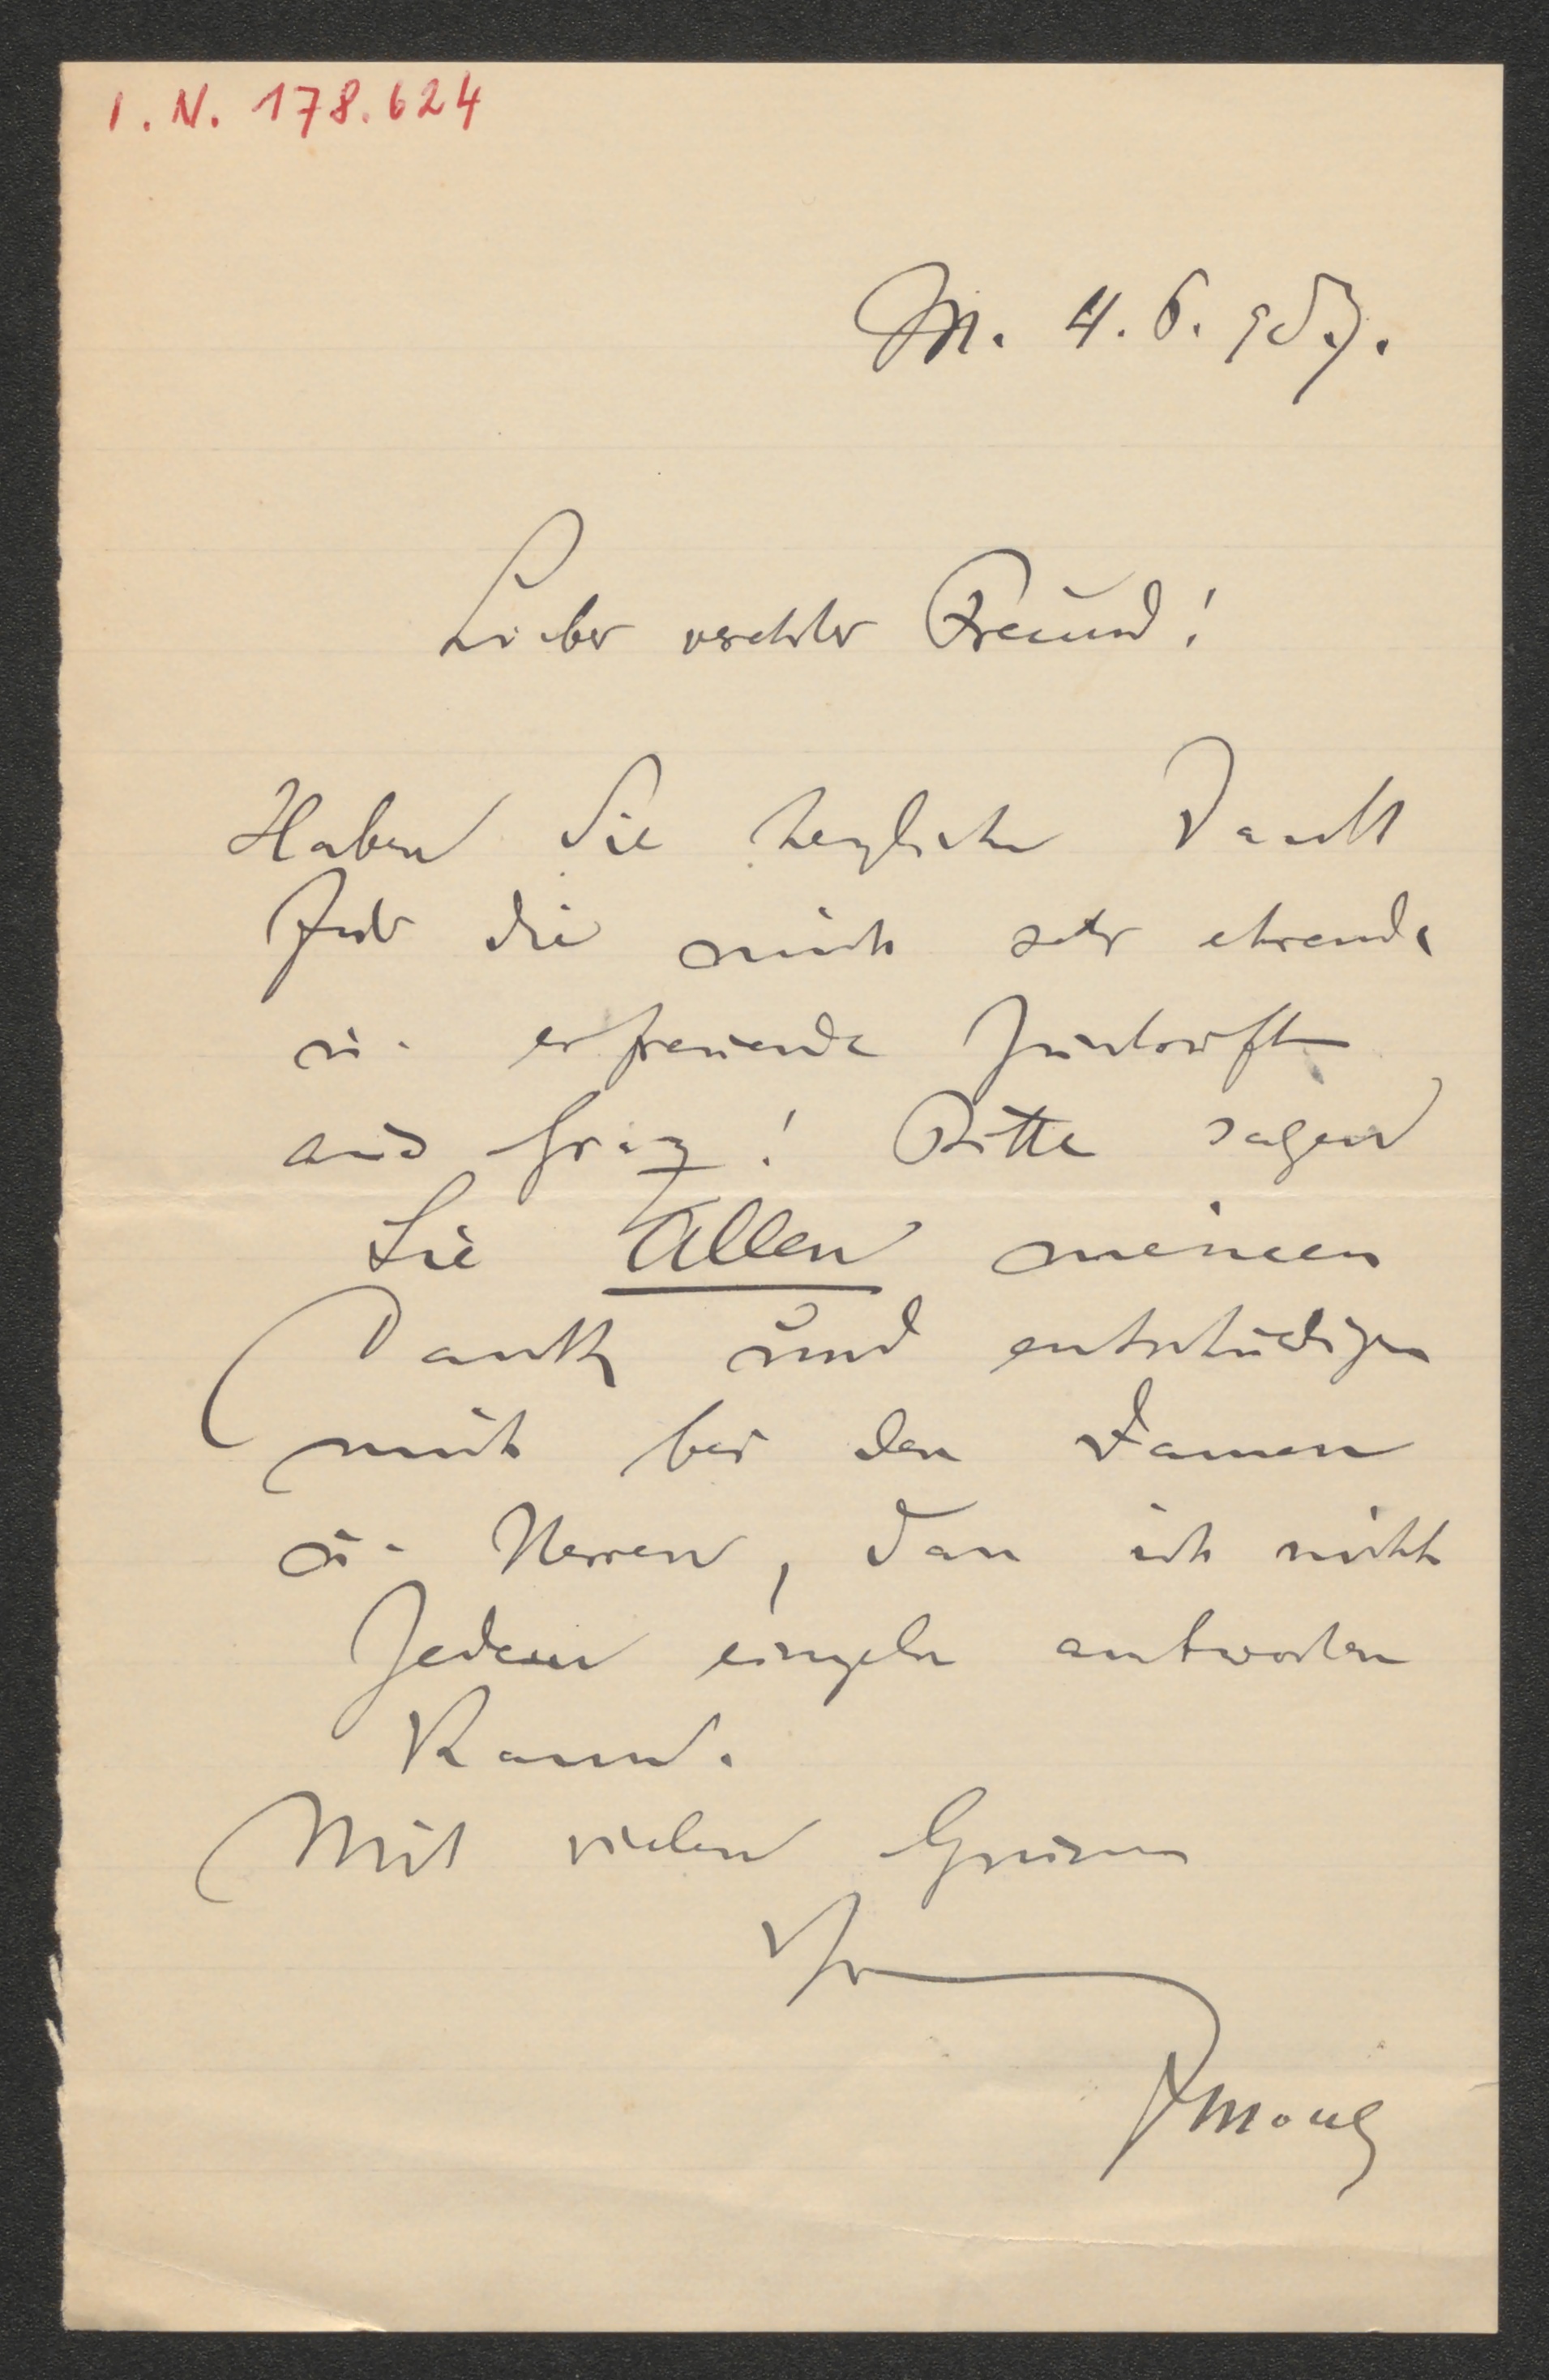 I. N. 178.624
M. 4. 6. 957.
Lieber verehrter Freund!
Haben Sie herzlichen Dank
für die mich sehr ehrende
u. erfreuende Zuschrift
aus Graz! Bitte sagen
Sie Allen meinen
Dank und entschuldigen
mich bei den Damen
u. Herren, dass ich nicht
Jedem einzeln antworten
kann.
Mit vielen Grüssen
Ihr